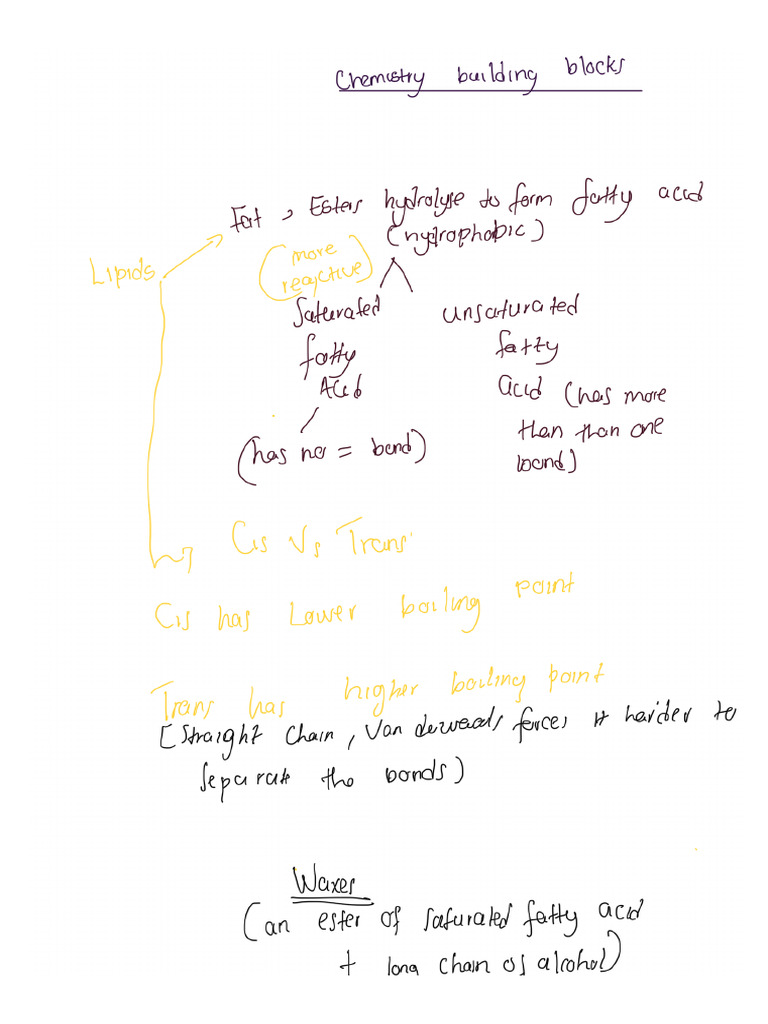 Chemistry building blocks
Fat → Esters hydrolyse to form fatty acid
(hydrophobic)
Lipids
(more
reactive)
Saturated
fatty
Acid
(has no = bond)
unsaturated
fatty
acid (has more
than than one
bond)
Cis Vs Trans
Cis has Lower boiling point
Trans has higher boiling point
[straight chain, Van derwaals forces harder to
separate the bonds)
Waxes
(an ester of saturated fatty acid
+ long chain of alcohol)